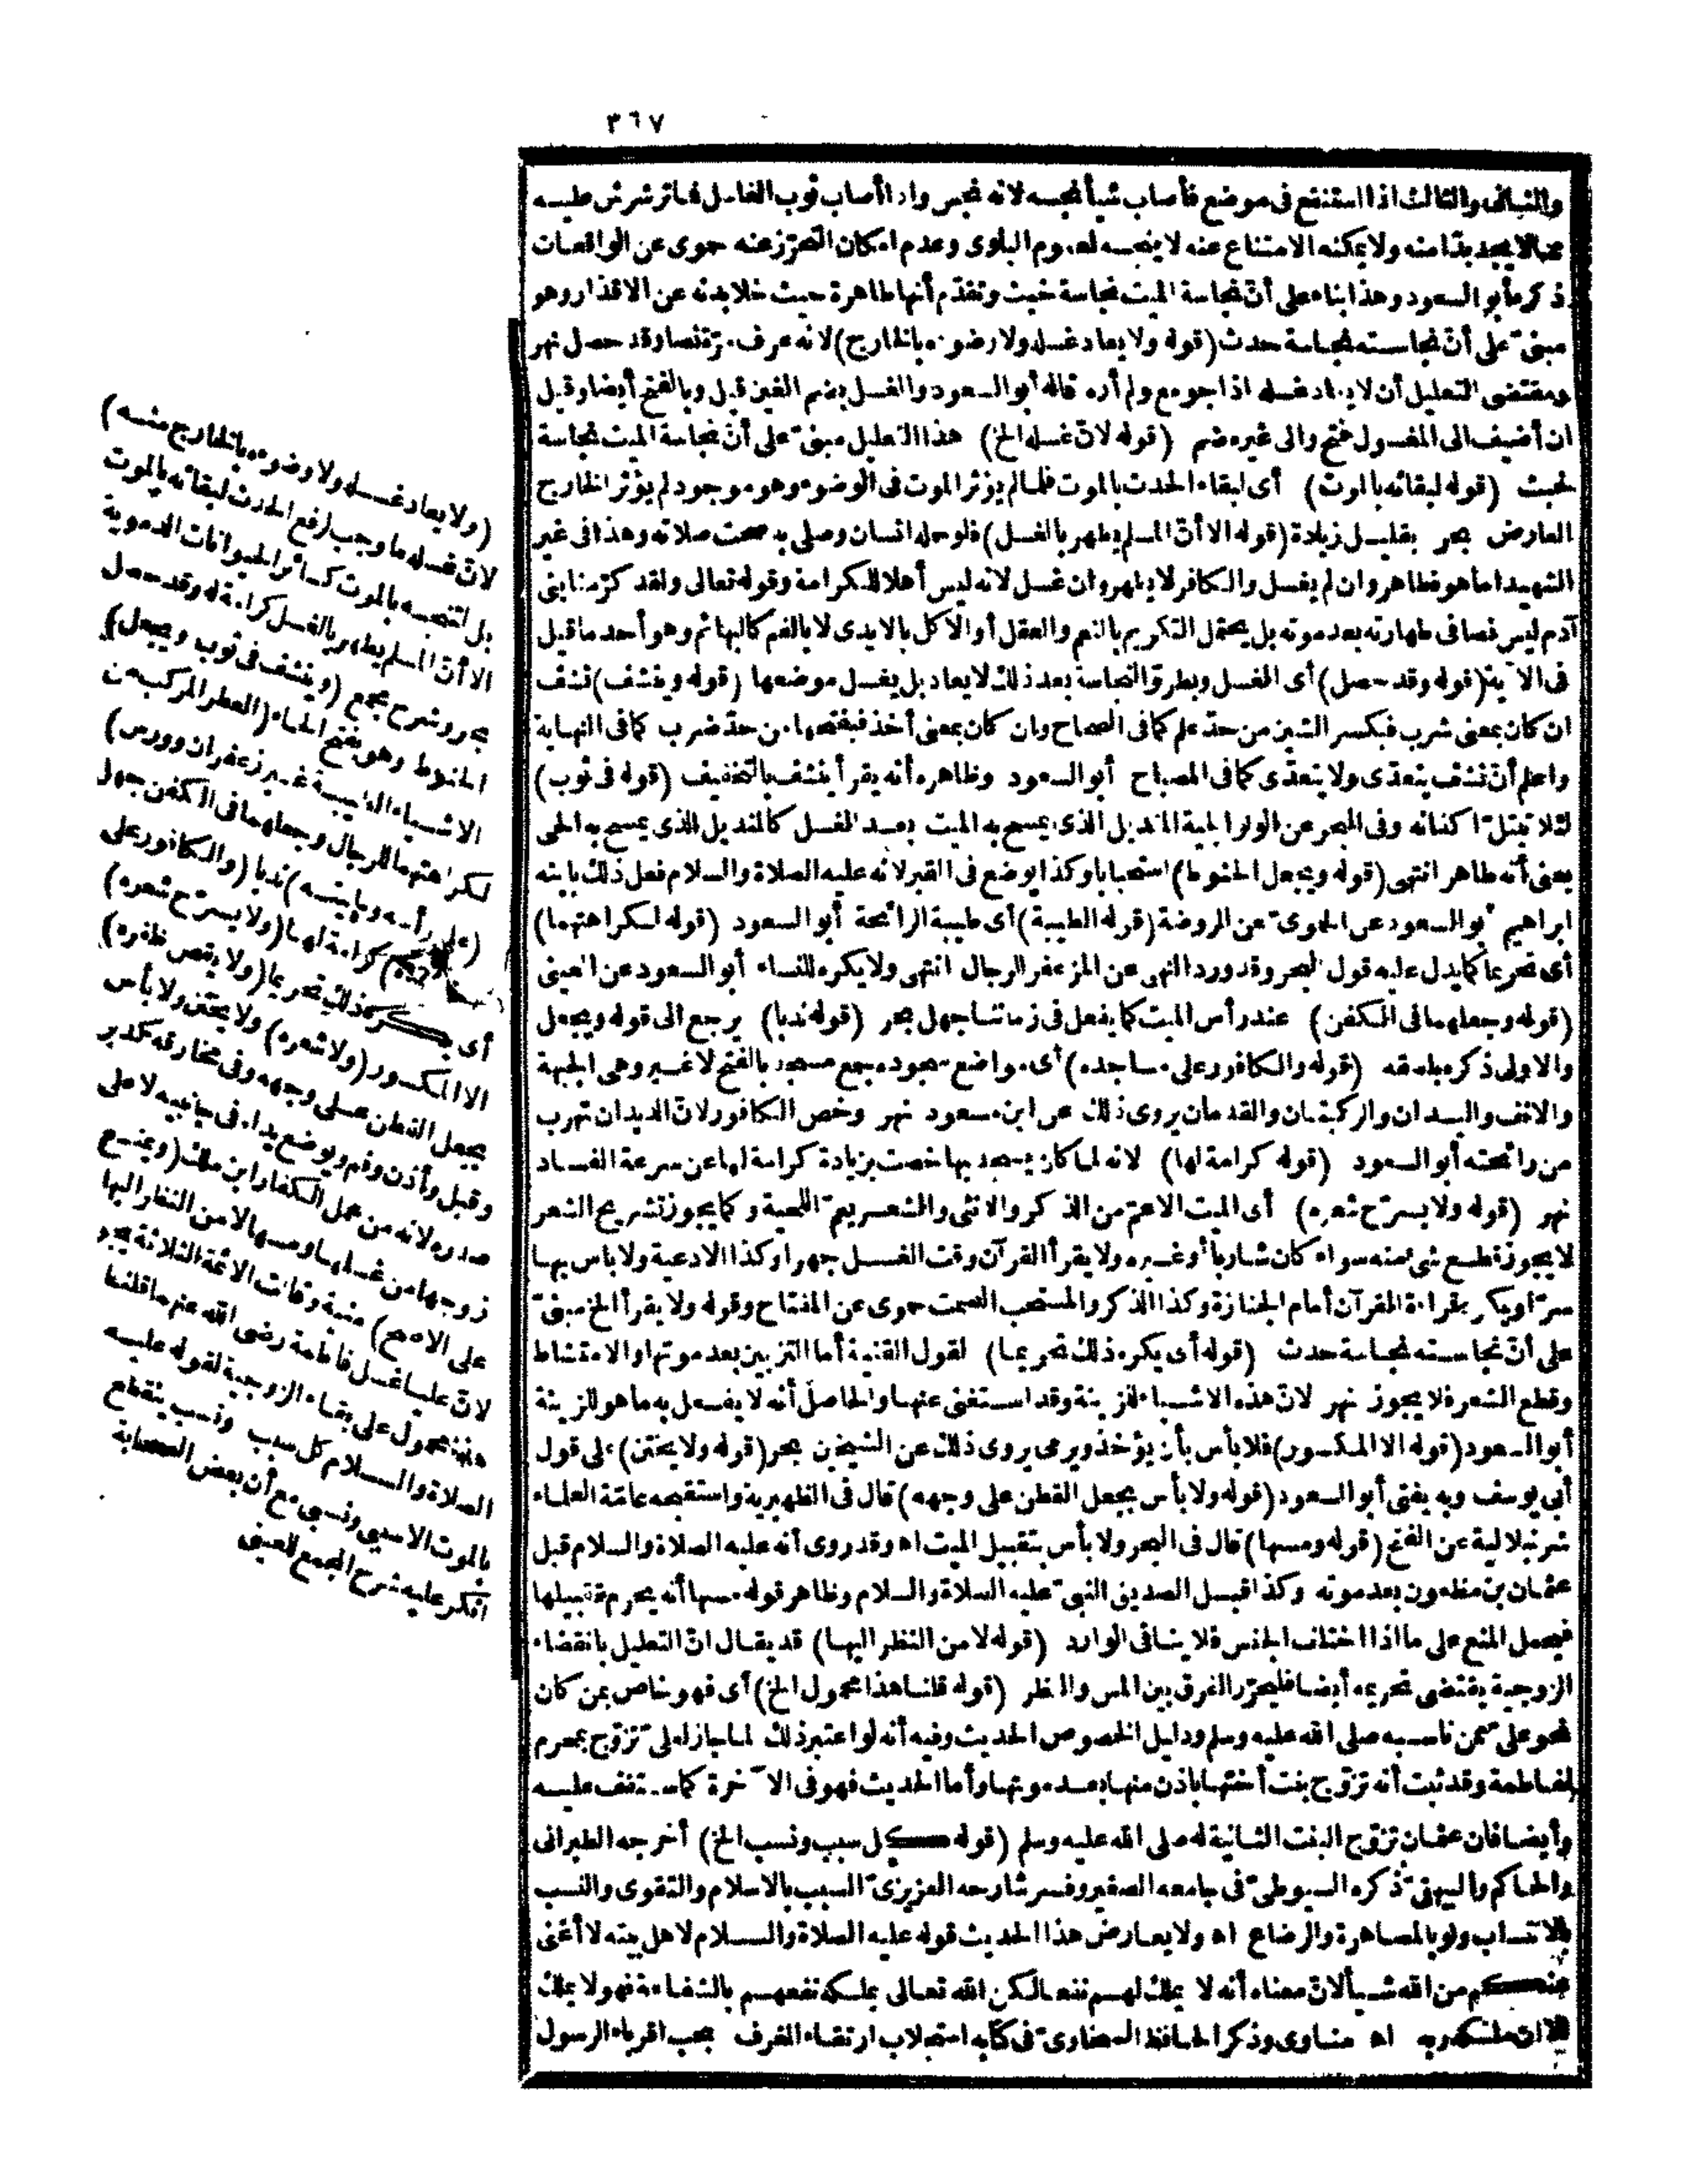 ٣٦٧
والثانى والثالث اذا استنقع فى موضع فأصاب شيأ نجسه لانه نجس واذا أصاب ثوب الغاسل فما ترشرش عليه
مما لا يجد بدّا منه ولا يمكنه الامتناع عنه لا ينجسه لعموم البلوى وعدم امكان التحرّز عنه حموى عن الواقعات
ذكره أبو السعود وهذا بناء على أنّ نجاسة الميت نجاسة خبث وتقدّم أنها طاهرة حيث خلا بدنه عن الاقذار وهو
مبنىّ على أنّ نجاسته نجاسة حدث (قوله ولا يعاد غسله ولا وضوءه بالخارج) لانه عرف مرّة نصا وقد حصل نهر
ومقتضى التعليل أن لا يعاد غسله اذا جومع ولم أره قاله أبو السعود والغسل بضم الغين قيل وبالفتح أيضا وقيل
ان أضيف الى المغسول فتح والى غيره ضم (قوله لانّ غسله الخ) هذا التعليل مبنىّ على أنّ نجاسة الميت نجاسة
خبث (قوله لبقائه بالموت) أى لبقاء الحدث بالموت فلما لم يؤثر الموت فى الوضوء وهو موجود لم يؤثر الخارج
العارض بحر بقليل زيادة (قوله الا أنّ المسلم يطهر بالغسل) فلو حمله انسان وصلى به صحت صلاته وهذا فى غير
الشهيد اما هو فطاهر وان لم يغسل والكافر لا يطهر وان غسل لانه ليس أهلا للكرامة وقوله تعالى ولقد كرّمنا بنى
آدم ليس نصا فى طهارته بعد موته بل يحتمل التكريم بالنعم والعقل أو الاكل بالايدى لا بالفم كالبهائم وهو أحد ما قيل
فى الآية (قوله وقد حصل) أى الغسل وبطروّ النجاسة بعد ذلك لا يعاد بل يغسل موضعها (قوله وينشف) نشف
ان كان بمعنى شرب فبكسر الشين من حدّ علم كما فى الصحاح وان كان بمعنى أخذ فبفتحها من حدّ ضرب كما فى النهاية
واعلم أنّ نشف يتعدّى ولا يتعدّى كما فى المصباح أبو السعود وظاهره أنه يقرأ ينشف بالتخفيف (قوله فى ثوب)
لئلا تبتلّ اكفانه وفى البحر عن الولوالجية المنديل الذى يمسح به الميت بعد الغسل كالمنديل الذى يمسح به الحى
يعنى أنه طاهر انتهى (قوله ويجعل الحنوط) استحبابا وكذا يوضع فى القبر لانه عليه الصلاة والسلام فعل ذلك بابنه
ابراهيم أبو السعود عن الحموى عن الروضة (قوله الطيبة) أى طيبة الرائحة أبو السعود (قوله لكراهتهما)
أى تحريما كما يدل عليه قول البحر وقد ورد النهى عن المزعفر للرجال انتهى ولا يكره للنساء أبو السعود عن العينى
(قوله وجعلهما فى الكفن) عند رأس الميت كما يفعل فى زماننا جهل بحر (قوله ندبا) يرجع الى قوله ويجعل
والاولى ذكره بلصقه (قوله والكافور على مساجده) أى مواضع سجوده جمع مسجد بالفتح لا غير وهى الجبهة
والانف واليدان والركبتان والقدمان يروى ذلك عن ابن مسعود نهر وخص الكافور لانّ الديدان تهرب
من رائحته أبو السعود (قوله كرامة لها) لانه لما كان يسجد بها خصت بزيادة كرامة لها عن سرعة الفساد
نهر (قوله ولا يسرّح شعره) أى الميت الاعمّ من الذكر والانثى والشعر يعمّ اللحية وكما يجوز تشريح الشعر
لا يجوز قطع شئ منه سواء كان شاربا أو غيره ولا يقرأ القرآن وقت الغسل جهرا وكذا الادعية ولا باس بها
سرّا ويكره قراءة القرآن أمام الجنازة وكذا الذكر والمستحب الصمت حموى عن المفتاح وقوله ولا يقرأ الخ مبنىّ
على أنّ نجاسته نجاسة حدث (قوله أى يكره ذلك تحريما) لقول القنية أما التزيين بعد موتها والامتشاط
وقطع الشعر فلا يجوز نهر لانّ هذه الاشياء للزينة وقد استغنى عنها والحاصل أنه لا يفعل به ما هو للزينة
أبو السعود (قوله الا المكسور) فلا بأس بأن يؤخذ ويرمى يروى ذلك عن الشيخين بحر (قوله ولا يختن) على قول
أبى يوسف وبه يفتى أبو السعود (قوله ولا بأس بجعل القطن على وجهه) قال فى الظهيرية واستقبحه عامّة العلماء
شرنبلالية عن الفتح (قوله ومسها) قال فى البحر ولا بأس بتقبيل الميت اه وقد روى أنه عليه الصلاة والسلام قبل
عثمان بن مظعون بعد موته وكذا قبل الصديق النبى عليه السلاة والسلام وظاهر قوله مسها أنه يحرم تقبيلها
فيحمل المنع على ما اذا اختلف الجنس فلا ينافى الوارد (قوله لا من النظر اليها) قد يقال انّ التعليل بانقضاء
الزوجية يقتضى تحريمه أيضا فليحرّر الفرق بين المس والنظر (قوله قلنا هذا محمول الخ) أى فهو خاص بمن كان
نحو علىّ ممن ناسبه صلى الله عليه وسلم ودليل الخصوص الحديث وفيه أنه لو اعتبر ذلك لما جاز لعلىّ تزوّج بمحرم
لفاطمة وقد ثبت أنه تزوّج بنت أختها باذن منها بعد موتها وأما الحديث فهو فى الآخرة كما ستقف عليه
وأيضا فان عثمان تزوّج البنت الثانية له صلى الله عليه وسلم (قوله كل سبب ونسب الخ) أخرجه الطبرانى
والحاكم والبيهقىّ ذكره السيوطىّ فى جامعه الصغير وفسر شارحه العزيزىّ السبب بالاسلام والتقوى والنسب
بالانتساب ولو بالمصاهرة والرضاع اه ولا يعارض هذا الحديث قوله عليه الصلاة والسلام لاهل بيته لا أغنى
عنكم من الله شيأ لانّ معناه أنه لا يملك لهم نفعا لكن الله تعالى يملكه نفعهم بالشفاعة فهو لا يملك
الا ان ملكه ربه اه مناوى وذكر الحافظ السخاوىّ فى كتابه استجلاب ارتقاء الغرف بحب اقرباء الرسول
(ولا يعاد غسله ولا وضوءه بالخارج منه)
لانّ غسله ما وجب لرفع الحدث لبقائه بالموت
بل لتنجسه بالموت كسائر الحيوانات الدموية
الا أنّ المسلم يطهر بالغسل كرامة له وقد حصل
بحر وشرح مجمع (وينشف فى ثوب ويجعل)
الحنوط وهو بفتح الحاء (العطر المركب من
الاشياء الطيبة غير زعفران وورس)
لكراهتهما للرجال وجعلهما فى الكفن جهل
(على رأسه ولحيته) ندبا (والكافور على
مساجده) كرامة لها (ولا يسرّح شعره)
أى يكره ذلك تحريما (ولا يقص ظفره)
الا المكسور (ولا شعره) ولا يختن ولا بأس
بجعل القطن على وجهه وفى مخارقه كدبر
وقبل وأذن وفم ويوضع يداه فى جانبيه لا على
صدره لانه من عمل الكفار ابن ملك (ويمنع
زوجها من غسلها ومسها لا من النظر اليها
على الاصح) منية وقالت الائمة الثلاثة يجوز
لانّ عليا غسل فاطمة رضى الله عنهما قلنا
هذا محمول على بقاء الزوجية لقوله عليه
الصلاة والسلام كل سبب ونسب ينقطع
بالموت الا سببى ونسبى مع أن بعض الصحابة
انكر عليه شرح المجمع للعينى